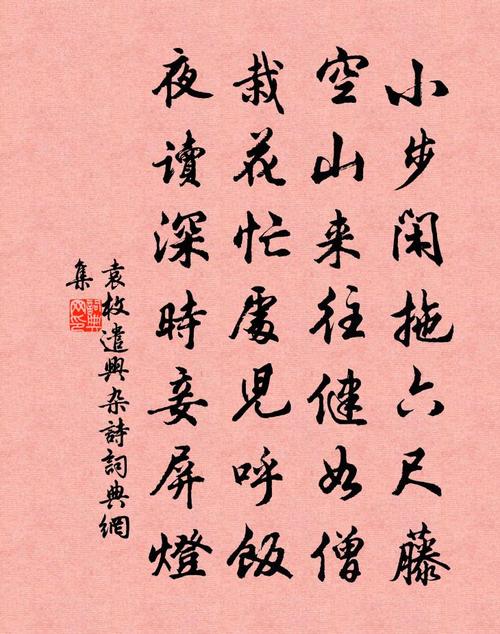 小步閑拖六尺藤
空山來往健如僧
栽花忙處兒呼飯
夜讀深時妾屏燈
袁枚遣興杂詩詞典網
集
詞典